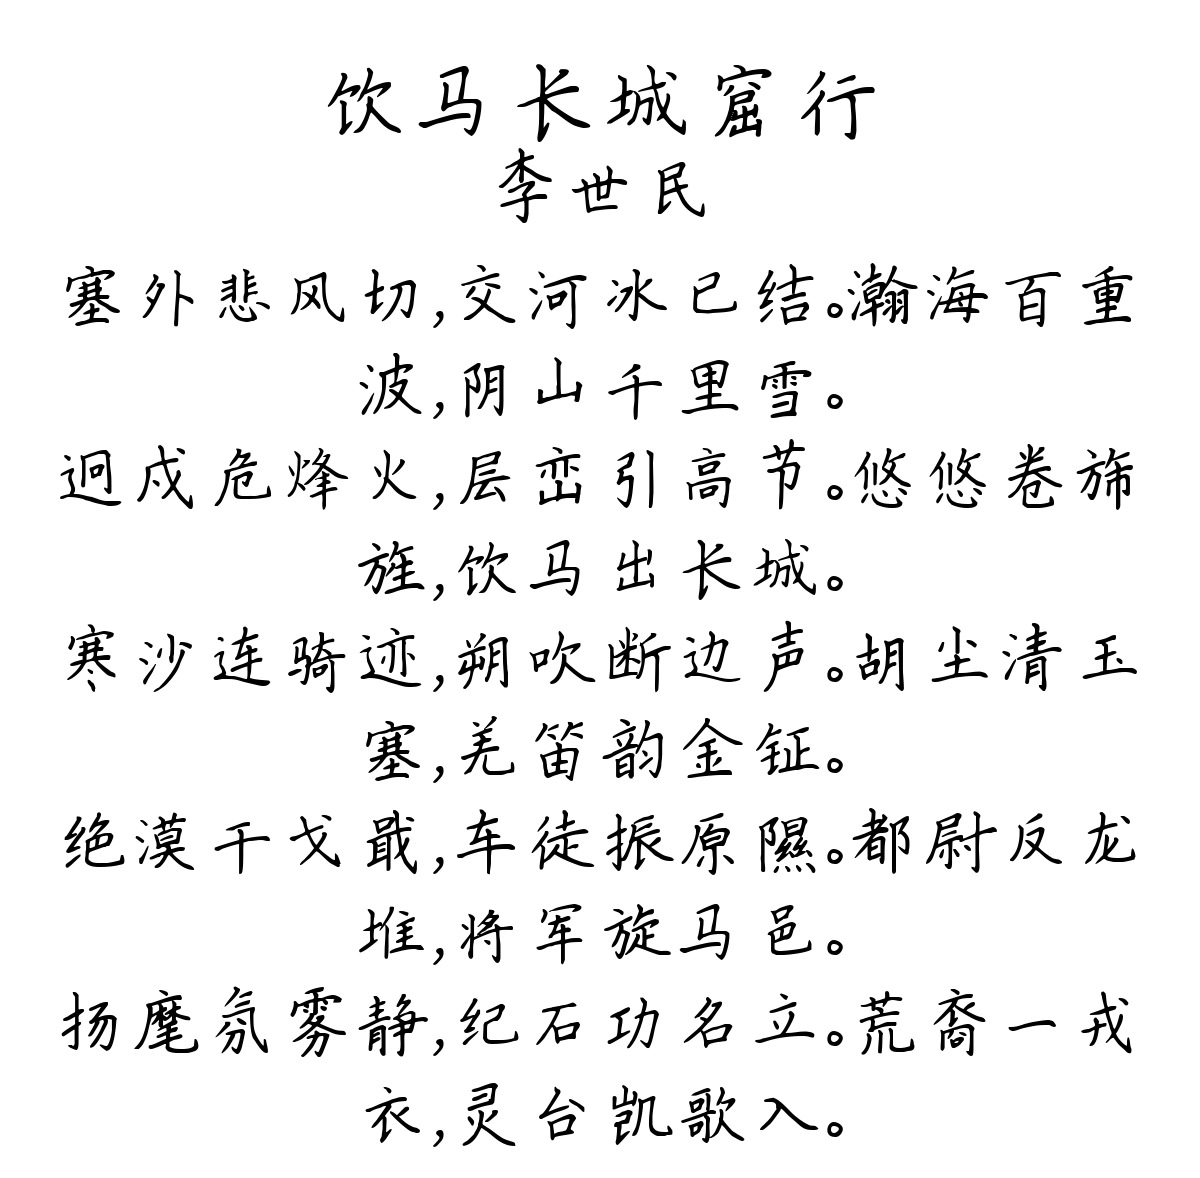 饮马长城窟行
李世民
塞外悲风切,交河冰已结。瀚海百重
波,阴山千里雪。
迥戍危烽火,层峦引高节。悠悠卷旆
旌,饮马出长城。
寒沙连骑迹,朔吹断边声。胡尘清玉
塞,羌笛韵金钲。
绝漠干戈戢,车徒振原隰。都尉反龙
堆,将军旋马邑。
扬麾氛雾静,纪石功名立。荒裔一戎
衣,灵台凯歌入。